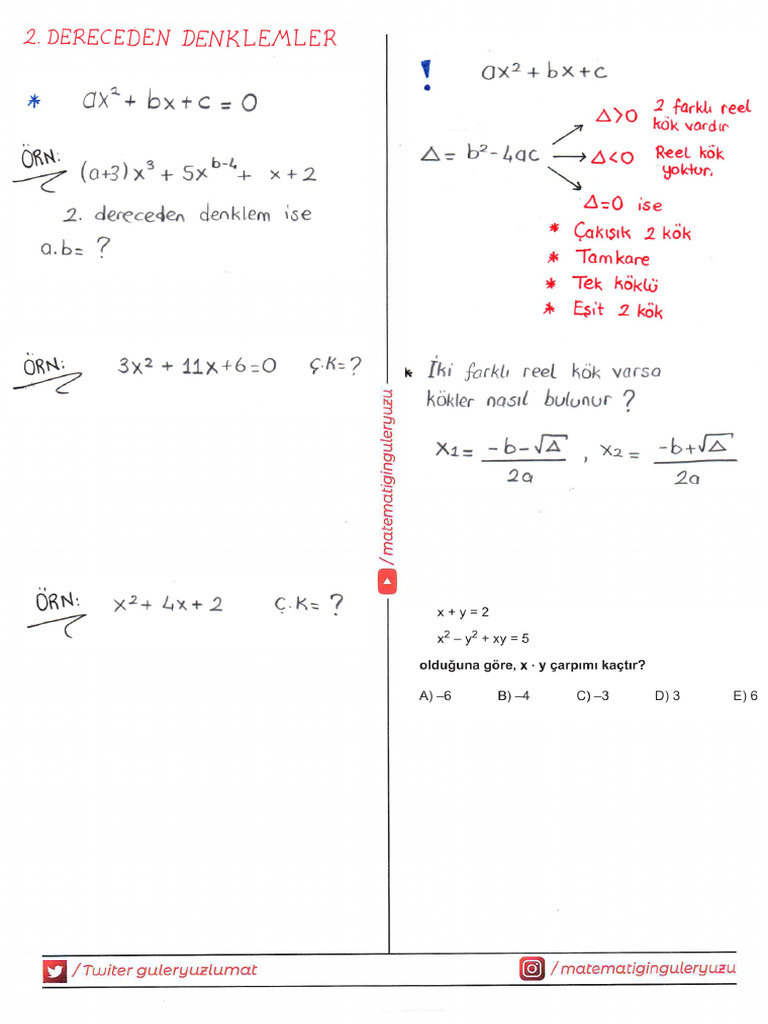 2. DERECEDEN DENKLEMLER
* ax² + bx + c = 0
ÖRN: (a+3)x³ + 5x^(b-4) + x + 2
2. dereceden denklem ise
a.b = ?
ÖRN: 3x² + 11x + 6 = 0 Ç.K = ?
ÖRN: x² + 4x + 2 Ç.K = ?
! ax² + bx + c
Δ = b² - 4ac
Δ>0 2 farklı reel
kök vardır
Δ<0 Reel kök
yoktur.
Δ=0 ise
* Çakışık 2 kök
* Tamkare
* Tek köklü
* Eşit 2 kök
* İki farklı reel kök varsa
kökler nasıl bulunur ?
x₁ = (-b-√Δ)/2a , x₂ = (-b+√Δ)/2a
x + y = 2
x² – y² + xy = 5
olduğuna göre, x · y çarpımı kaçtır?
A) –6 B) –4 C) –3 D) 3 E) 6
/matematiginguleryuzu
/Twiter guleryuzlumat
/matematiginguleryuzu